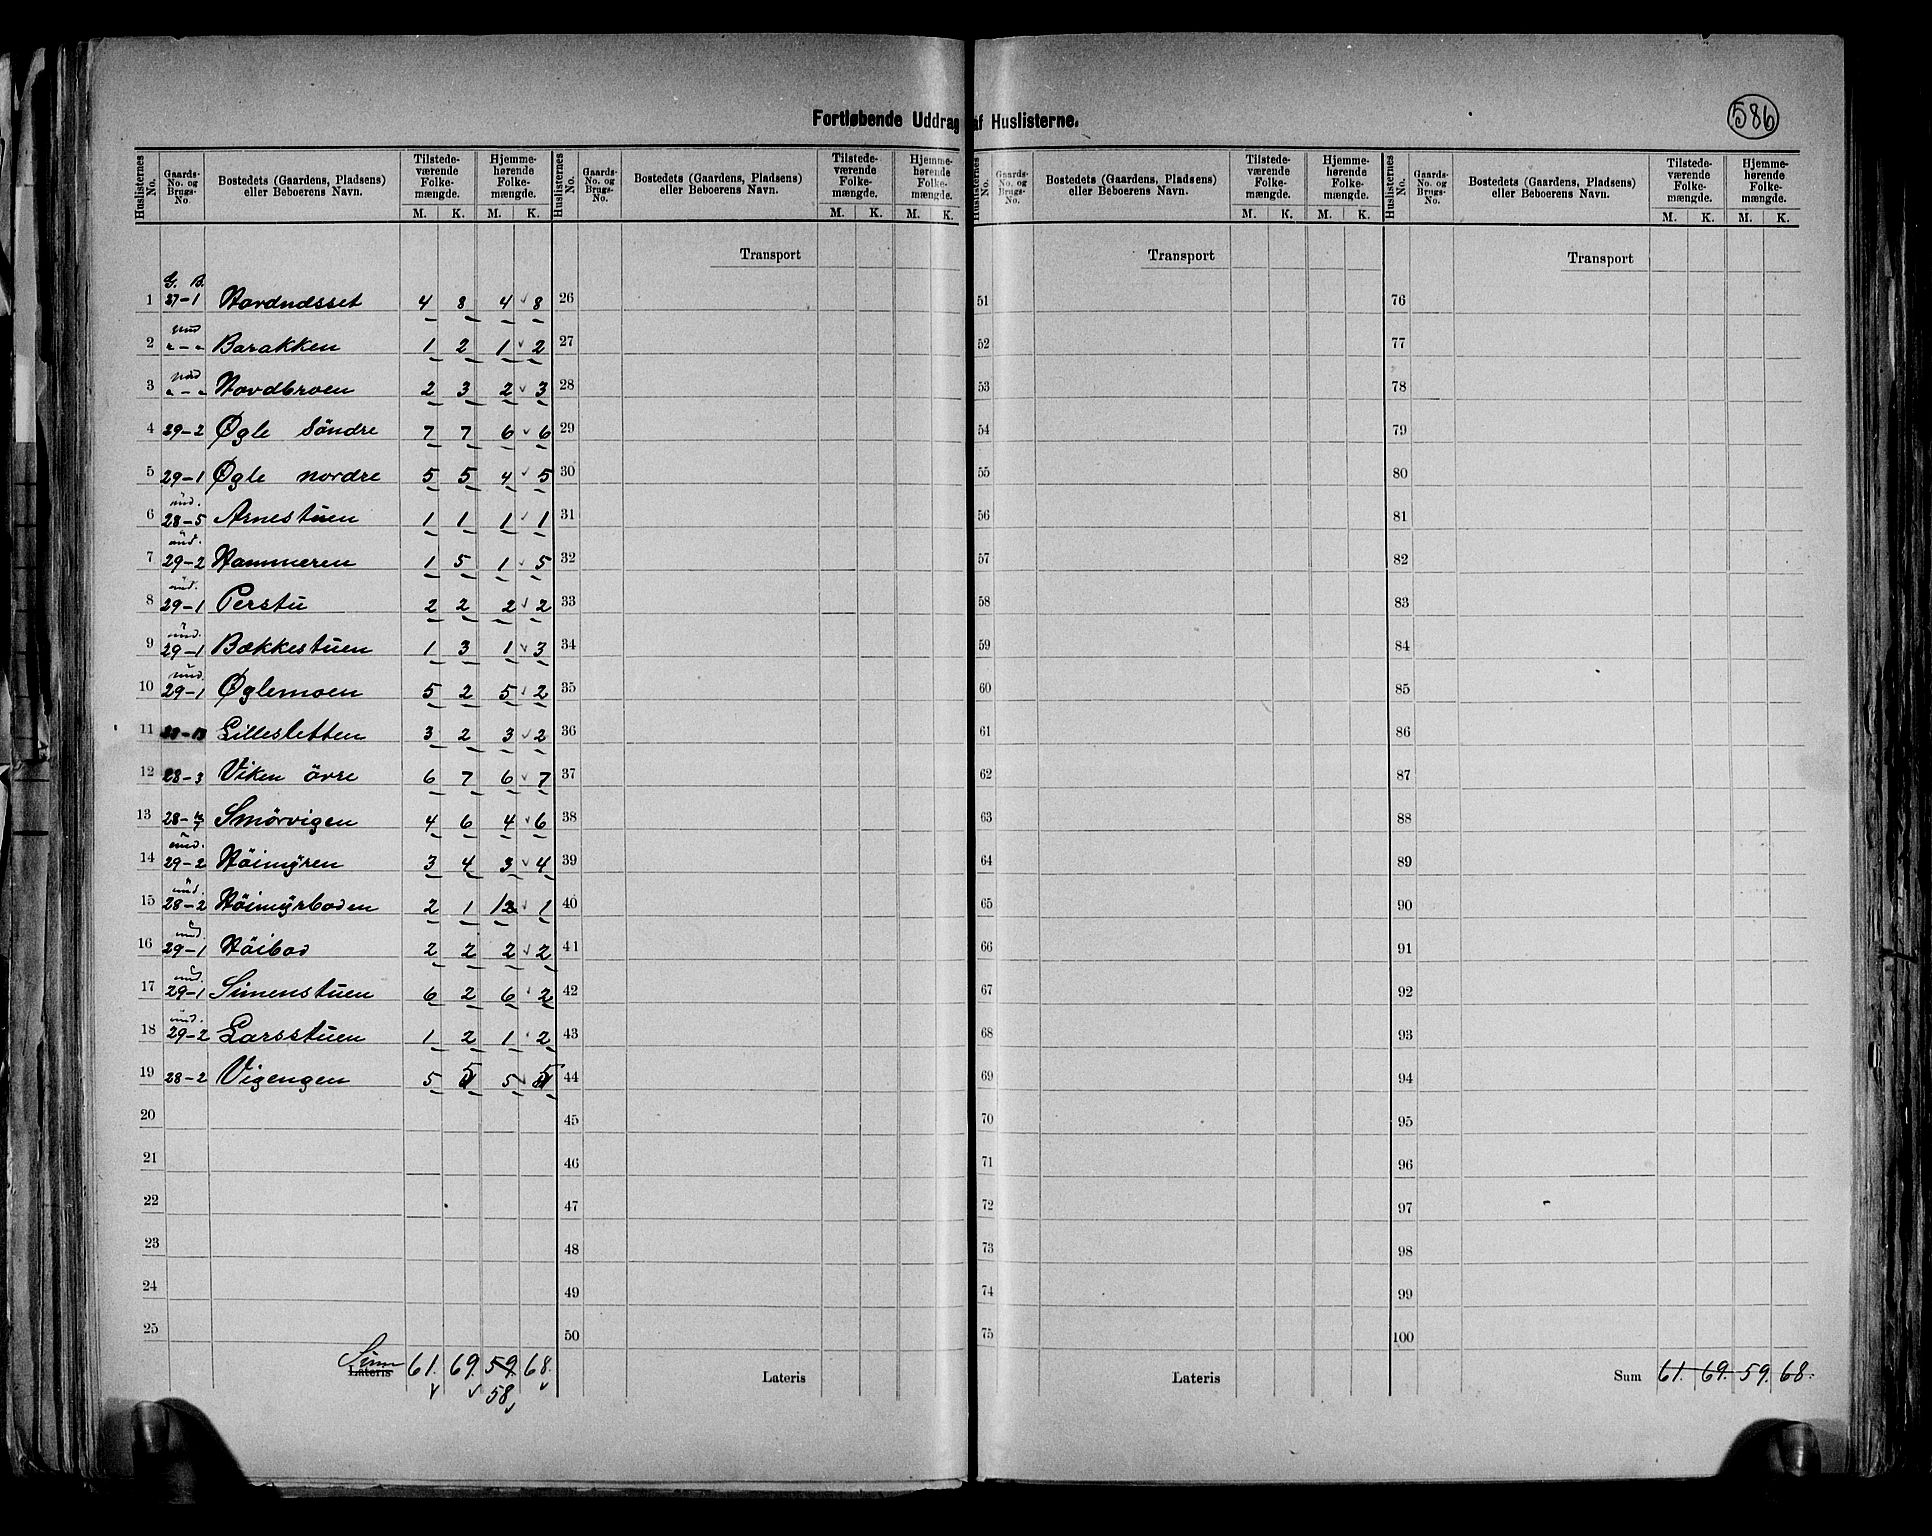 586
Fortløbende Uddrag af Huslisterne.
Huslisternes No. Gaards-No. og Brugs-No. Bostedets (Gaardens, Pladsens) eller Beboerens Navn. Tilstede-værende Folke-mængde. M. K. Hjemme-hørende Folke-mængde. M. K.
Huslisternes No. Gaards-No. og Brugs-No. Bostedets (Gaardens, Pladsens) eller Beboerens Navn. Tilstede-værende Folke-mængde. M. K. Hjemme-hørende Folke-mængde. M. K.
Huslisternes No. Gaards-No. og Brugs-No. Bostedets (Gaardens, Pladsens) eller Beboerens Navn. Tilstede-værende Folke-mængde. M. K. Hjemme-hørende Folke-mængde. M. K.
Huslisternes No. Gaards-No. og Brugs-No. Bostedets (Gaardens, Pladsens) eller Beboerens Navn. Tilstede-værende Folke-mængde. M. K. Hjemme-hørende Folke-mængde. M. K.
Transport Transport Transport
G. B.
1 37-1 Nordnæsset 4 8 4 8 26 51 76
und
2 "-" Barakken 1 2 1 2 27 52 77
und
3 "-" Nordbroen 2 3 2 3 28 53 78
4 29-2 Øgle Söndre 7 7 6 6 29 54 79
5 29-1 Øgle nordre 5 5 4 5 30 55 80
und.
6 28-5 Arnestuen 1 1 1 1 31 56 81
und.
7 29-2 Hammeren 1 5 1 5 32 57 82
und.
8 29-1 Perstu 2 2 2 2 33 58 83
und.
9 29-1 Bækkestuen 1 3 1 3 34 59 84
und.
10 29-1 Øglemoen 5 2 5 2 35 60 85
11 Lillesletten 3 2 3 2 36 61 86
12 28-3 Viken övre 6 7 6 7 37 62 87
13 28- Smörvigen 4 6 4 6 38 63 88
und.
14 29-2 Höimyren 3 4 3 4 39 64 89
und.
15 28-2 Höimyrboden 2 1 1 1 40 65 90
und.
16 29-1 Höibod 2 2 2 2 41 66 91
und.
17 29-1 Simenstuen 6 2 6 2 42 67 92
und.
18 29-2 Larsstuen 1 2 1 2 43 68 93
19 28-2 Vigengen 5 5 5 5 44 69 94
20 45 70 95
21 46 71 96
22 47 72 97
23 48 73 98
24 49 74 99
25 50 75 100
Sum Lateris 61. 69. 59. 68. Lateris Lateris Sum 61. 69. 59. 68.
58